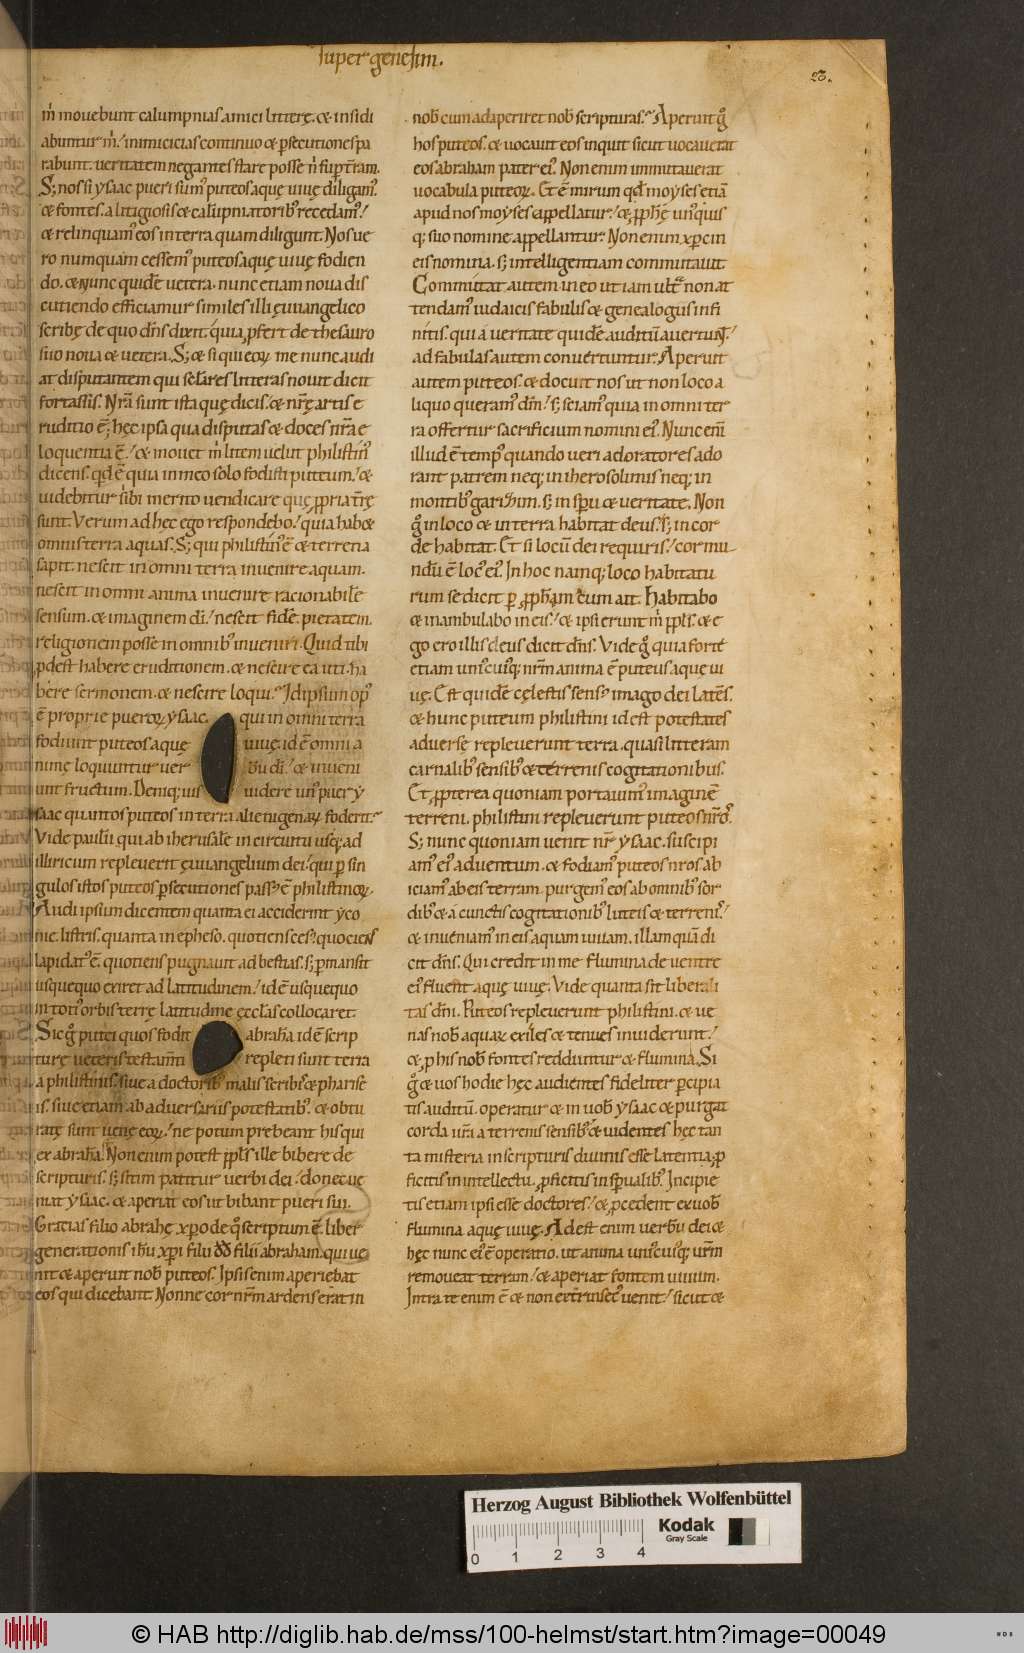 super genesim.
23.
m̄ movebunt calumpnias amici litterę. & insidi
abuntur m̄. inimicicias continuo & p̱secutiones pa
rabunt. veritatem negantes stare posse n̄ sup̱ t̄ram.
S; nos si ysaac pueri sumꝰ puteos aquę vivę diligamꝰ.
& fontes. a litigiosis & calūpniatoribꝰ recedamꝰ.
& relinquamꝰ eos in terra quam diligunt. Nos ve
ro numquam cessemꝰ puteos aquę vivę fodien
do. & nunc quidē vetera. nunc etiam nova dis
cutiendo efficiamur similes illi ęvvangelico
scribę de quo dn̄s dixit. quia ꝓfert de thesauro
suo nova & vetera. S; & si qui eoꝝ me nunc audi
at disputantem qui sclāres litteras novit dicit
fortassis. Nr̄a sunt ista quę dicis. & nr̄ę artis e
ruditio ē; hęc ipsa qua disputas & doces nr̄a e
loquentia ē. & movet m̄ litem velut philistinꝰ
dicens. qd̄ ē quia in meo solo fodisti puteum. &
videbitur sibi merito vendicare quę ꝓpria t̄rę
sunt. Verum ad hęc ego respondebo. quia hab&
omnis terra aquas. S; qui philistinꝰ ē & terrena
sapit. nescit in omni terra invenire aquam.
nescit in omni anima invenire racionabilē
sensum. & imaginem di̅. nescit fidē. pietatem.
religionem posse in omnibꝰ inveniri. Quid tibi
ꝓdest habere eruditionem. & nescire ea uti. ha
bere sermonem. & nescire loqui. Id ipsum opꝰ
ē proprie pueroꝝ ysaac. qui in omni terra
fodiunt puteos aquę vivę. id ē omni a
nimę loquuntur ver bū di̅. & inveni
unt fructum. Deniq; vis videre unꝰ puer y
saac quantos puteos in terra alienigenaꝝ foderit.
Vide paulū qui ab iherusalē in circuitu usq; ad
illiricum replevit ęvvangelium dei. qui p̱ sin
gulos istos puteos p̱secutiones passꝰ ē philistinoꝝ.
Audi ipsum dicentem quanta ei acciderint yco
nie. listris. quanta in epheso. quotiens cesꝰ. quociens
lapidatꝰ ē. quotiens pugnavit ad bestias. s; p̱mansit
usquequo exiret ad latitudinem. id ē usquequo
in totiꝰ orbis terrę latitudine ęcclās collocaret.
Sic gͦ putei quos fodit abrahā id ē scrip
turę veteris testam̄ti repleti sunt terra
a philistinis. sive a doctoribꝰ malis scribis & pharisę
is. sive etiam ab adversariis potestatibꝰ. & obtu
ratę sunt venę eoꝝ. ne potum prebeant his qui
ex abrahā. Non enim potest ppl̄s ille bibere de
scripturis. s; sitim patitur verbi dei. donec ve
niat ysaac. & aperiat eos ut bibant pueri sui.
Gratias filio abrahę xp̄o de q̊ scriptum ē. liber
generationis ih̄u xp̄i filii dd̄ filii abraham. qui ve
nit & aperuit nob̄ puteos. Ipsis enim aperiebat
eos qui dicebant. Nonne cor nr̄m ardens erat in
nob̄ cum adaperiret nob̄ scripturas. Aperuit gͦ
hos puteos. & vocavit eos inquit sicut vocaverat
eos abraham pater eiꝰ. Non enim immutaverat
vocabula puteoꝝ. Et ē mirum qd̄ moyses etiā
apud nos moyses appellatur. & ꝓph̄ę unꝰquis
q; suo nomine appellantur. Non enim xp̄c in
eis nomina. s; intelligentiam commutavit.
Commutat autem in eo ut iam ult̄ non at
tendamꝰ iudaicis fabulis & genealogiis infi
nitis. quia a veritate quidē auditū avertunt̄.
ad fabulas autem convertuntur. Aperuit
autem puteos. & docuit nos ut non loco a
liquo queramꝰ dm̄. s; sciamꝰ quia in omni ter
ra offertur sacrificium nomini eiꝰ. Nunc eni̅
illud ē tempꝰ quando veri adoratores ado
rant patrem neq; in iherosolimis neq; in
montibꝰ garizim. s; in sp̄u & veritate. Non
gͦ in loco & in terra habitat deus. s; in cor
de habitat. Et si locū dei requiris. cor mu
ndū ē locꝰ eiꝰ. In hoc namq; loco habitatu
rum se dicit p̱ ꝓph̄am cum ait. Habitabo
& inambulabo in eis. & ipsi erunt m̄ ppl̄s. & e
go ero illis deus dicit dn̄s. Vide gͦ quia forte
etiam uniꝰcuiꝰq; nr̄m anima ē puteus aquę vi
vę. Est quidē cęlestis sensꝰ imago dei latēs.
& hunc puteum philistini id est potestates
adversę repleverunt terra. quasi litteram
carnalibꝰ sensibꝰ & terrenis cogitationibus.
Et ꝓpterea quoniam portavimꝰ imaginē
terreni. philistini repleverunt puteos nr̄oꝰ.
S; nunc quoniam venit nr̄ ysaac. suscipi
amꝰ eiꝰ adventum. & fodiamꝰ puteos nr̄os. ab
iciamꝰ ab eis terram. purgemꝰ eos ab omnibꝰ sor
dibꝰ & a cunctis cogitationibꝰ luteis & terrenis.
& inveniamꝰ in eis aquam vivam. illam quā di
cit dn̄s. Qui credit in me flumina de ventre
eiꝰ fluent aquę vivę. Vide quanta sit liberali
tas dn̄i. Puteos repleverunt philistini. & ve
nas nob̄ aquaꝝ exiles & tenues inviderunt.
& ꝓ his nob̄ fontes redduntur & flumina. Si
gͦ & vos hodie hęc audientes fideliter p̱cipia
tis auditū. operatur & in vob̄ ysaac & purgat
corda vr̄a a terrenis sensibꝰ & videntes hęc tan
ta misteria in scripturis divinis esse latentia. ꝓ
ficitis in intellectu. ꝓficitis in sp̄ualibꝰ. Incipie
tis etiam ipsi esse doctores. & ꝓcedent ex vob̄
flumina aquę vivę. Adest enim verbū dei &
hęc nunc eiꝰ ē operatio. ut anima uniꝰcuiꝰq; vr̄m
removeat terram. & aperiat fontem vivum.
Intra te enim ē & non extrinsecꝰ venit. sicut &
Herzog August Bibliothek Wolfenbüttel
Kodak
Gray Scale
0 1 2 3 4
© HAB http://diglib.hab.de/mss/100-helmst/start.htm?image=00049